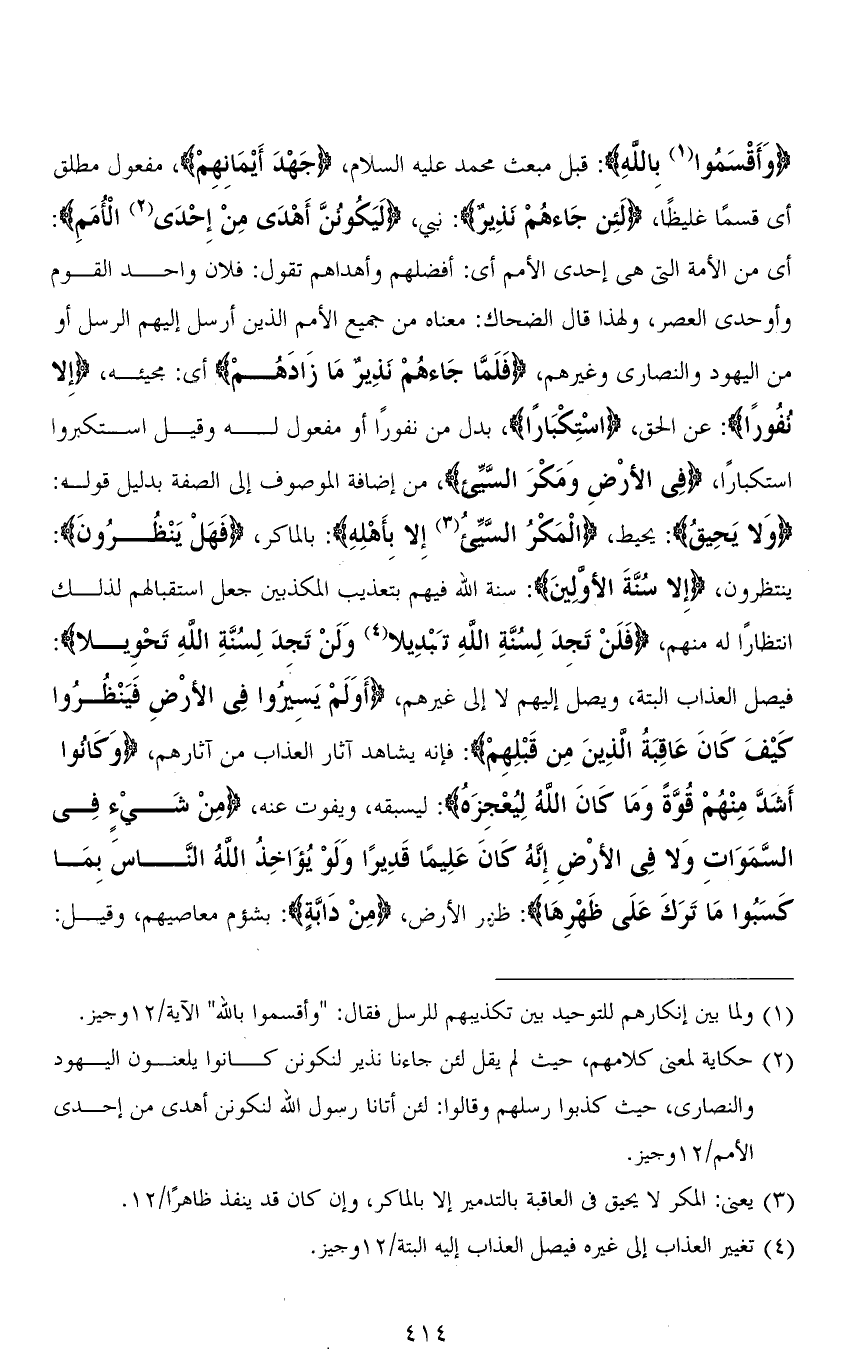 ﴿وَأَقْسَمُوا(١) بِاللَّهِ﴾: قبل مبعث محمد عليه السلام، ﴿جَهْدَ أَيْمَانِهِمْ﴾، مفعول مطلق
أى قسمًا غليظًا، ﴿لَئِن جَاءهُمْ نَذِيرٌ﴾: نبي، ﴿لَيَكُونُنَّ أَهْدَى مِنْ إِحْدَى(٢) الْأُمَمِ﴾:
أى من الأمة التى هى إحدى الأمم أى: أفضلهم وأهداهم تقول: فلان واحد القوم
وأوحدى العصر، ولهذا قال الضحاك: معناه من جميع الأمم الذين أرسل إليهم الرسل أو
من اليهود والنصارى وغيرهم، ﴿فَلَمَّا جَاءهُمْ نَذِيرٌ مَا زَادَهُمْ﴾ أى: مجيئه، ﴿إِلا
نُفُورًا﴾: عن الحق، ﴿اسْتِكْبَارًا﴾، بدل من نفورًا أو مفعول له وقيل استكبروا
استكبارًا، ﴿فِى الأَرْضِ وَمَكْرَ السَّيِّئِ﴾، من إضافة الموصوف إلى الصفة بدليل قوله:
﴿وَلا يَحِيقُ﴾: يحيط، ﴿الْمَكْرُ السَّيِّئُ(٣) إِلا بِأَهْلِهِ﴾: بالماكر، ﴿فَهَلْ يَنْظُرُونَ﴾:
ينتظرون، ﴿إِلا سُنَّةَ الأَوَّلِينَ﴾: سنة الله فيهم بتعذيب المكذبين جعل استقبالهم لذلك
انتظارًا له منهم، ﴿فَلَنْ تَجِدَ لِسُنَّةِ اللَّهِ تَبْدِيلا(٤) وَلَنْ تَجِدَ لِسُنَّةِ اللَّهِ تَحْوِيلا﴾:
فيصل العذاب البتة، ويصل إليهم لا إلى غيرهم، ﴿أَوَلَمْ يَسِيرُوا فِى الأَرْضِ فَيَنْظُرُوا
كَيْفَ كَانَ عَاقِبَةُ الَّذِينَ مِن قَبْلِهِمْ﴾: فإنه يشاهد آثار العذاب من آثارهم، ﴿وَكَانُوا
أَشَدَّ مِنْهُمْ قُوَّةً وَمَا كَانَ اللَّهُ لِيُعْجِزَهُ﴾: ليسبقه، ويفوت عنه، ﴿مِنْ شَيْءٍ فِى
السَّمَوَاتِ وَلَا فِى الأَرْضِ إِنَّهُ كَانَ عَلِيمًا قَدِيرًا وَلَوْ يُؤَاخِذُ اللَّهُ النَّاسَ بِمَا
كَسَبُوا مَا تَرَكَ عَلَى ظَهْرِهَا﴾: ظهر الأرض، ﴿مِنْ دَابَّةٍ﴾: بشؤم معاصيهم، وقيل:
(١) ولما بين إنكارهم للتوحيد بين تكذيبهم للرسل فقال: "وأقسموا بالله" الآية/١٢وجيز.
(٢) حكاية لمعنى كلامهم، حيث لم يقل لئن جاءنا نذير لنكونن كانوا يلعنون اليهود
والنصارى، حيث كذبوا رسلهم وقالوا: لئن أتانا رسول الله لنكونن أهدى من إحدى
الأمم/١٢وجيز.
(٣) يعنى: المكر لا يحيق فى العاقبة بالتدمير إلا بالماكر، وإن كان قد ينفذ ظاهرًا/١٢.
(٤) تغيير العذاب إلى غيره فيصل العذاب إليه البتة/١٢وجيز.
٤١٤